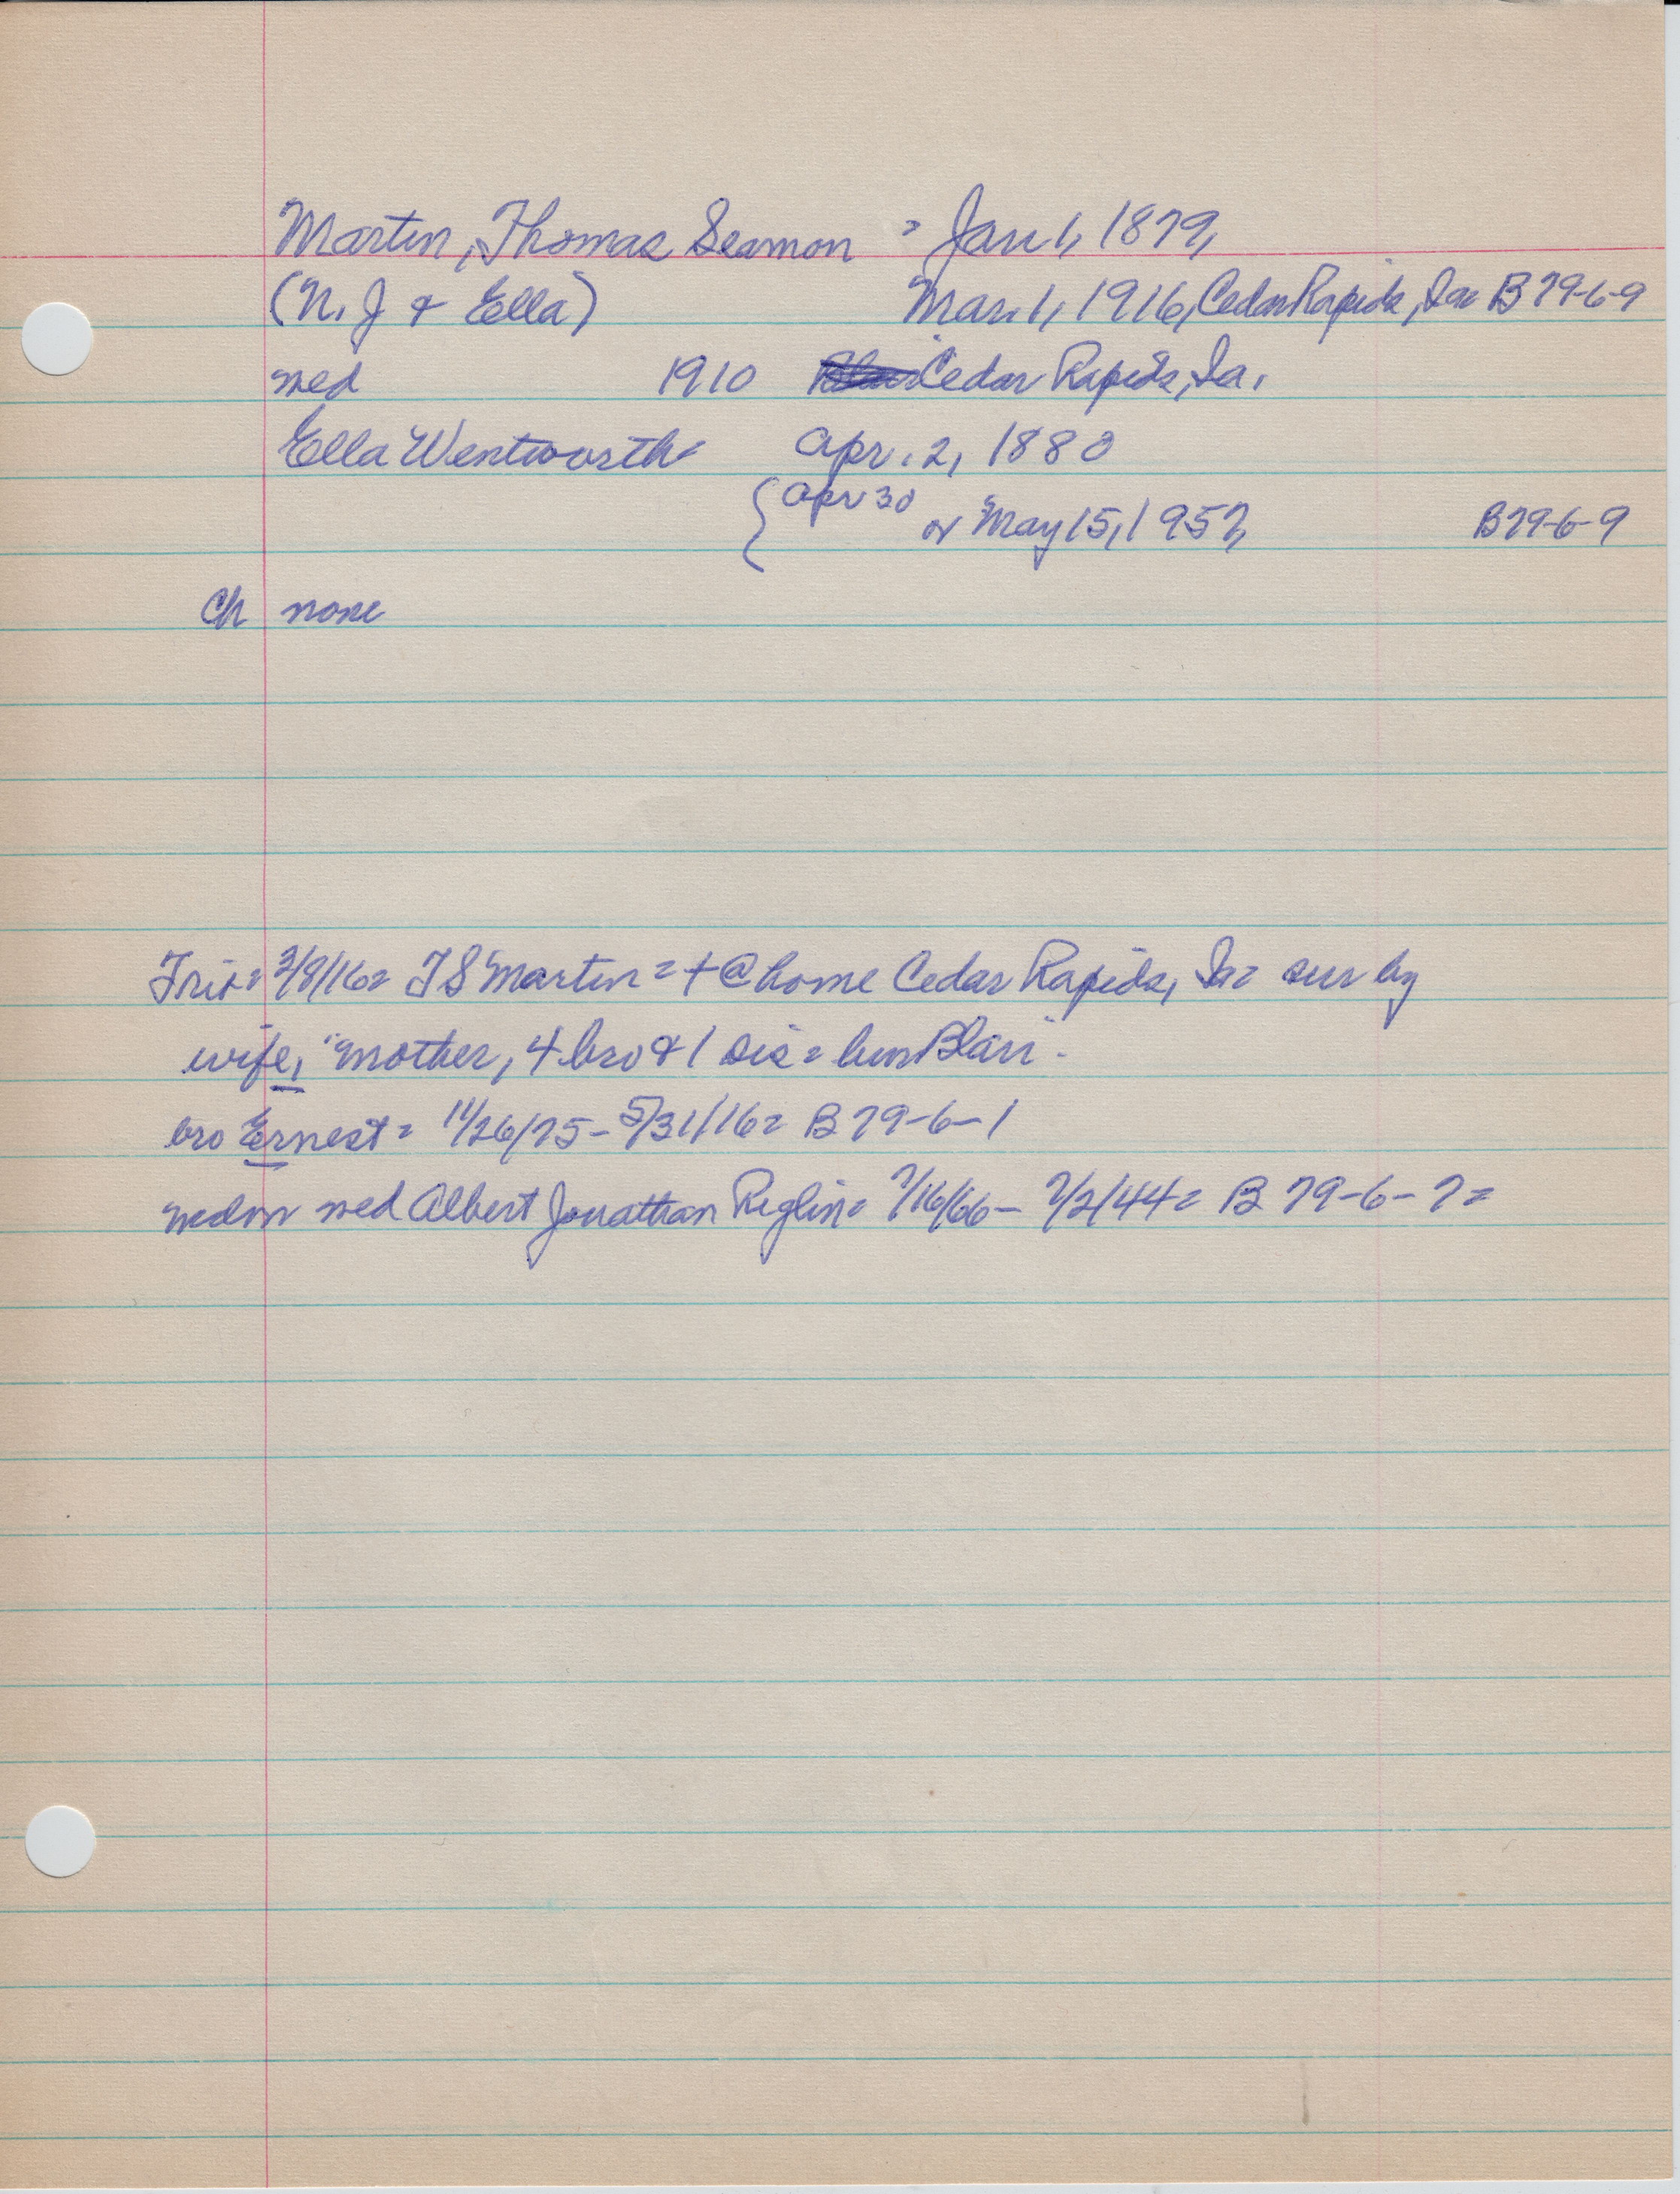 Martin, Thomas Seamon = Jan 1, 1879,
(N. J & Ella) Mar. 1, 1916, Cedar Rapids, Ia= B 79-6-9
wed 1910 Cedar Rapids, Ia.
Ella Wentworth Apr. 2, 1880
{ Apr 30
or May 15, 1957, B 79-6-9
Ch none
Trib= 3/8/16= T S Martin = + @ home Cedar Rapids, Ia= sur by
wife, mother, 4 bro & 1 sis = bur Blair.
bro Ernest = 11/26/75 - 5/31/16= B 79-6-1
wed Albert Jonathan Reglin= 7/16/66 - 7/2/44= B 79-6-7=